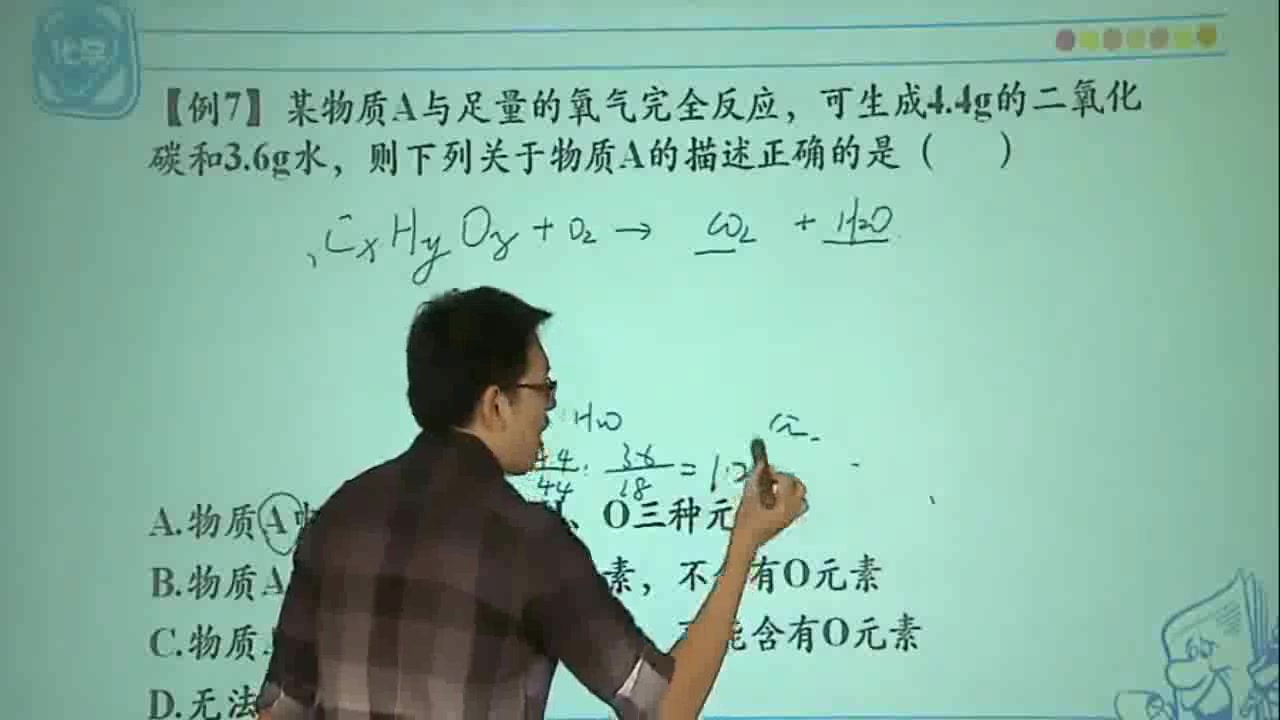 化学
【例7】某物质A与足量的氧气完全反应，可生成4.4g的二氧化
碳和3.6g水，则下列关于物质A的描述正确的是（　　）
CxHyOz + O2 → CO2 + H2O
: H2O
4.4/44 : 3.6/18 = 1:2
A.物质A 、O三种元
B.物质A 素，不 有O元素
C.物质 能含有O元素
D.无法